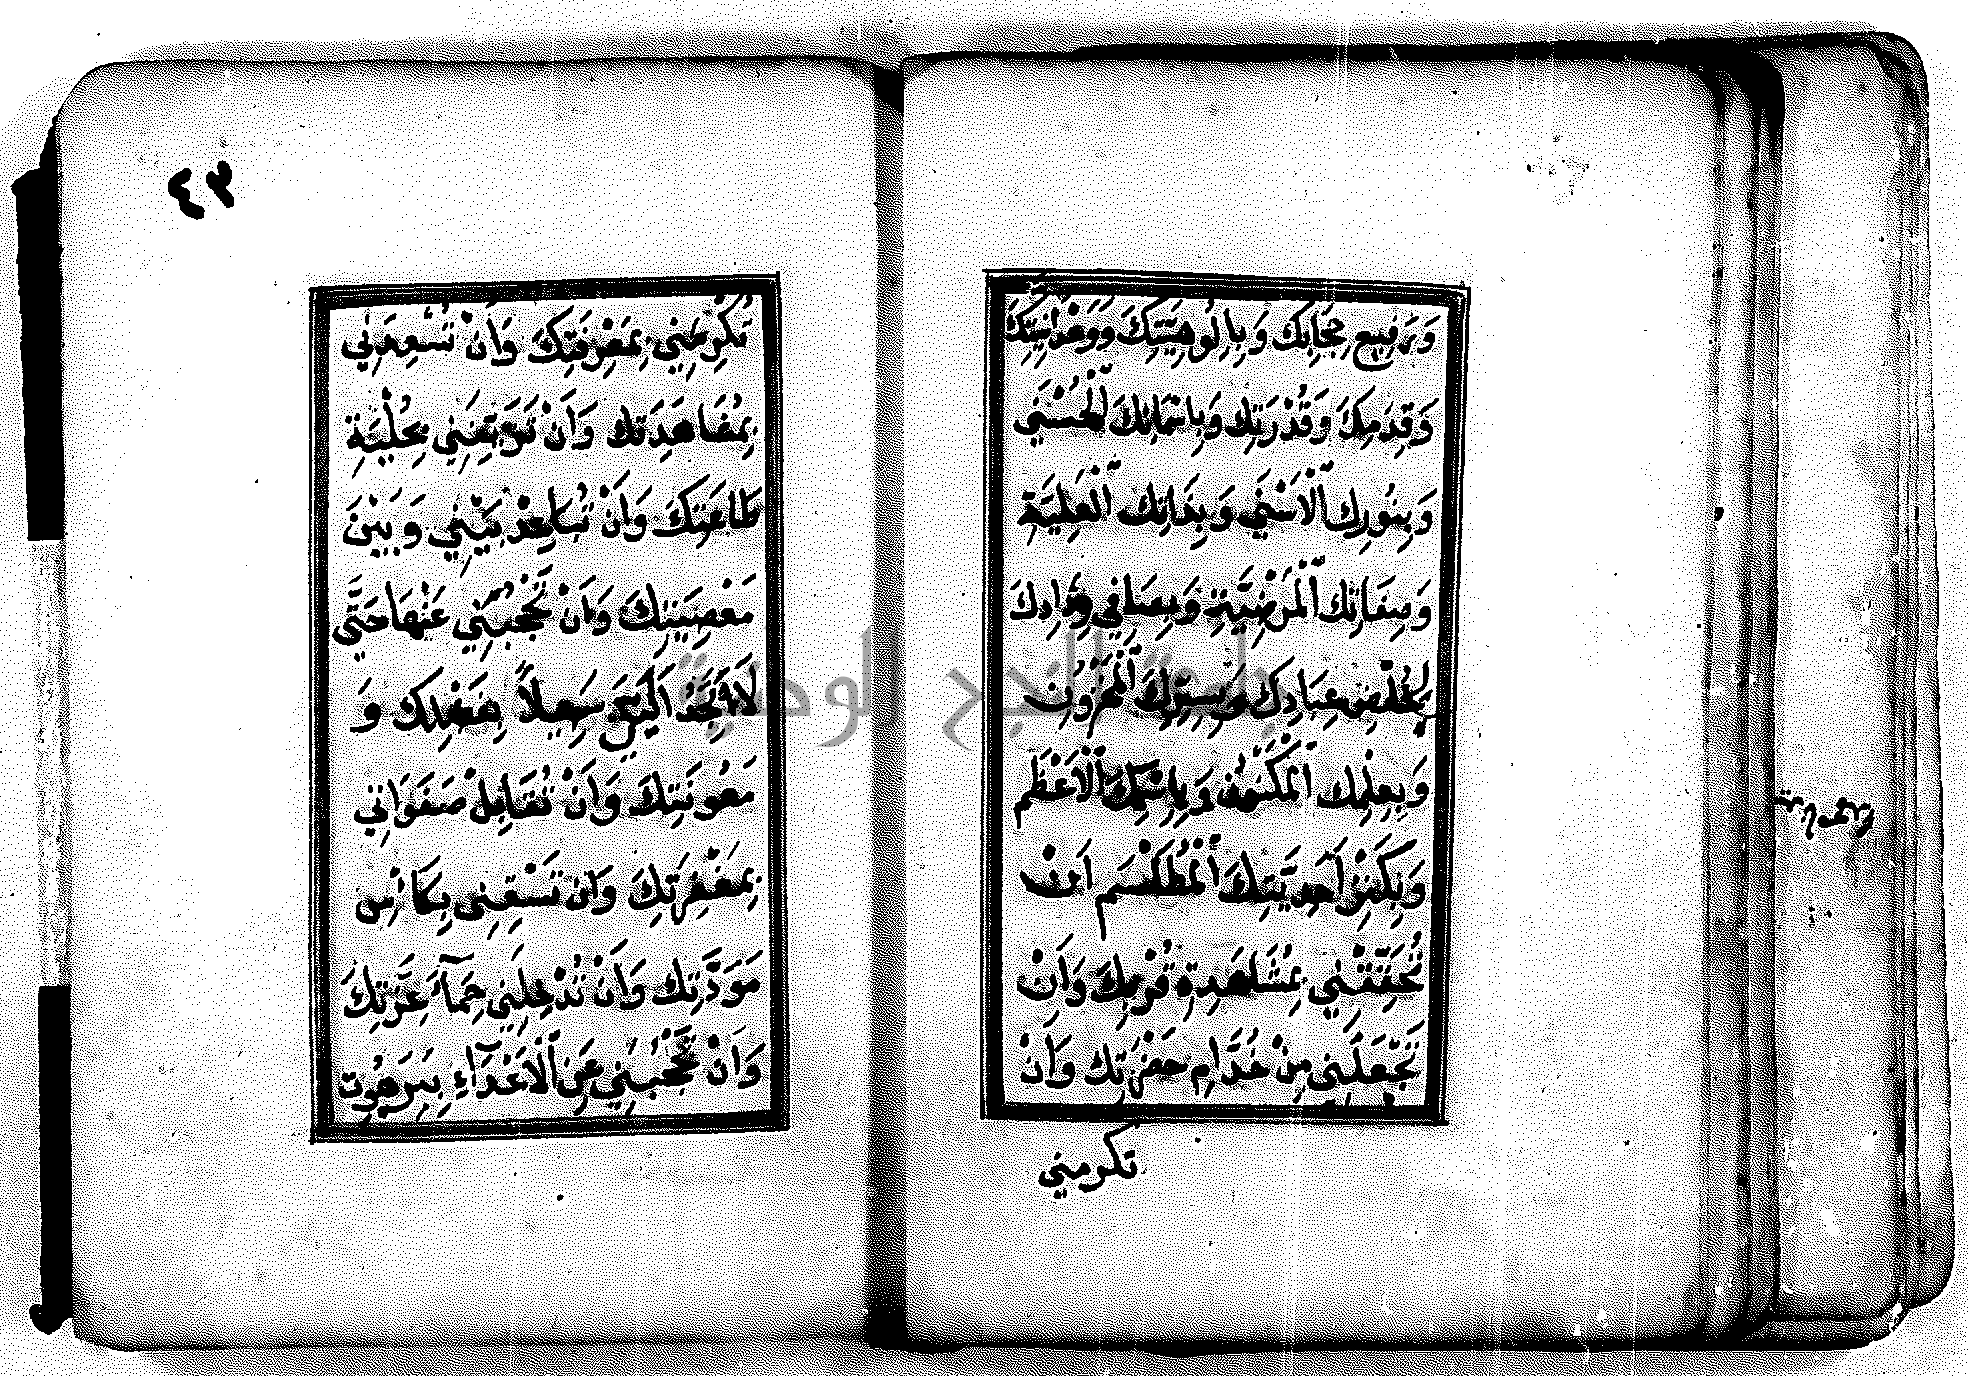 وَرَفِيعِ حِجَابِكَ وَبِاُلُوهِيَّتِكَ وَوَحْدَانِيَّتِكَ
وَقِدَمِكَ وَقُدْرَتِكَ وَبِاسْمَائِكَ الْحُسْنٰى
وَبِنُورِكَ الْاَسْنٰى وَبِذَاتِكَ الْعَلِيَّةِ
وَبِصِفَاتِكَ الْمَرْضِيَّةِ
عِبَادِكَ وَبِسِرِّكَ الْمَخْزُونِ
وَبِعِلْمِكَ الْمَكْنُونِ وَبِاسْمِكَ الْاَعْظَمِ
وَبِكَنْزِ اَحَدِيَّتِكَ الْمُطَلْسَمِ اَنْ
تُحَقِّقَنِي بِمُشَاهَدَةِ قُرْبِكَ وَاَنْ
تَجْعَلَنِي مِنْ خُدَّامِ حَضْرَتِكَ وَاَنْ
تكرمني
٤٢
تُكْرِمَنِي بِمَعْرِفَتِكَ وَاَنْ تُسْعِدَنِي
بِمُشَاهَدَتِكَ وَاَنْ تُتَوِّجَنِي بِحُلْيَةِ
طَاعَتِكَ وَاَنْ تُبَاعِدَ بَيْنِي وَبَيْنَ
مَعْصِيَتِكَ وَاَنْ تَحْجُبَنِي عَنْهَا حَتَّى
لَا اَجِدَ اِلَيْهَا سَبِيلًا بِفَضْلِكَ وَ
مَعُونَتِكَ وَاَنْ تُقَابِلَ هَفَوَاتِي
بِمَغْفِرَتِكَ وَاَنْ تَسْقِيَنِي بِكَاْسِ
مَوَدَّتِكَ وَاَنْ تُدْخِلَنِي حِمَآءَ عِزَّتِكَ
وَاَنْ تَحْجُبَنِي عَنِ الْاَعْدَآءِ